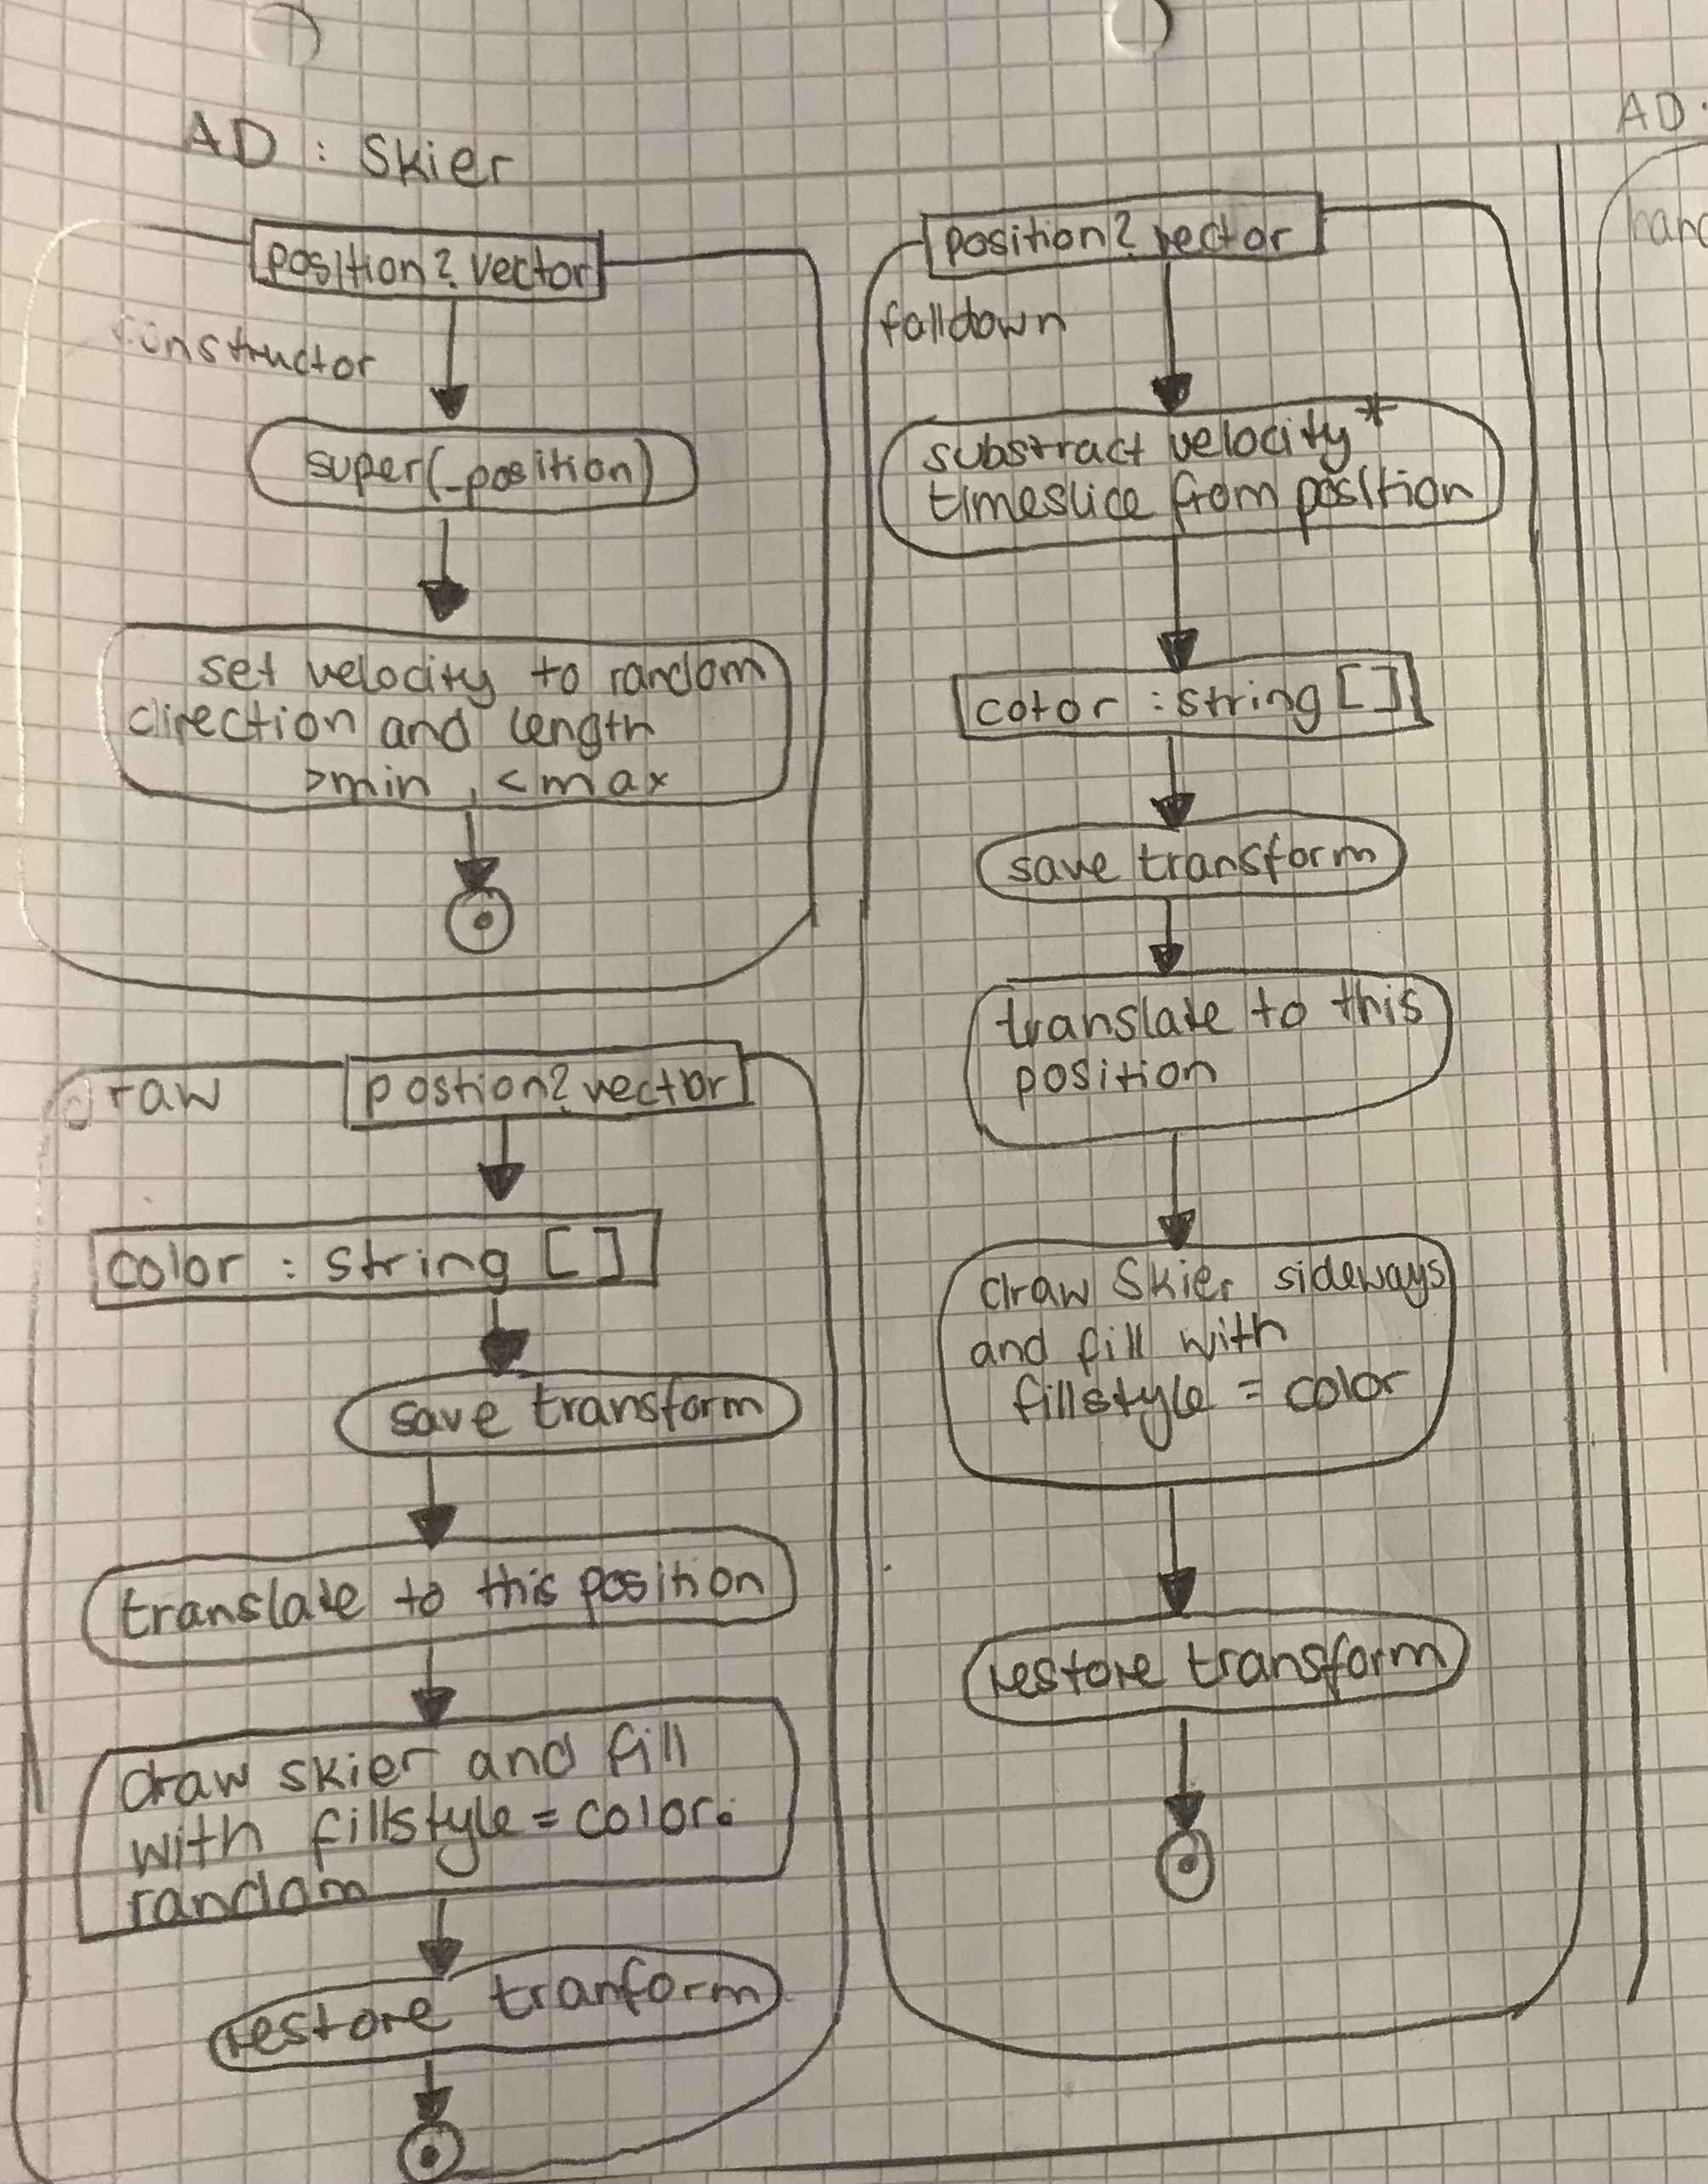 AD : Skier
position? vector
constructor
super(_position)
set velocity to random
direction and length
>min , <max
raw
postion? vector
color : string []
save transform
translate to this position
draw skier and fill
with fillstyle = color.
random
restore tranform
position? vector
falldown
substract velocity*
timeslice from position
color : string []
save transform
translate to this
position
draw Skier sideways
and fill with
fillstyle = color
restore transform
AD